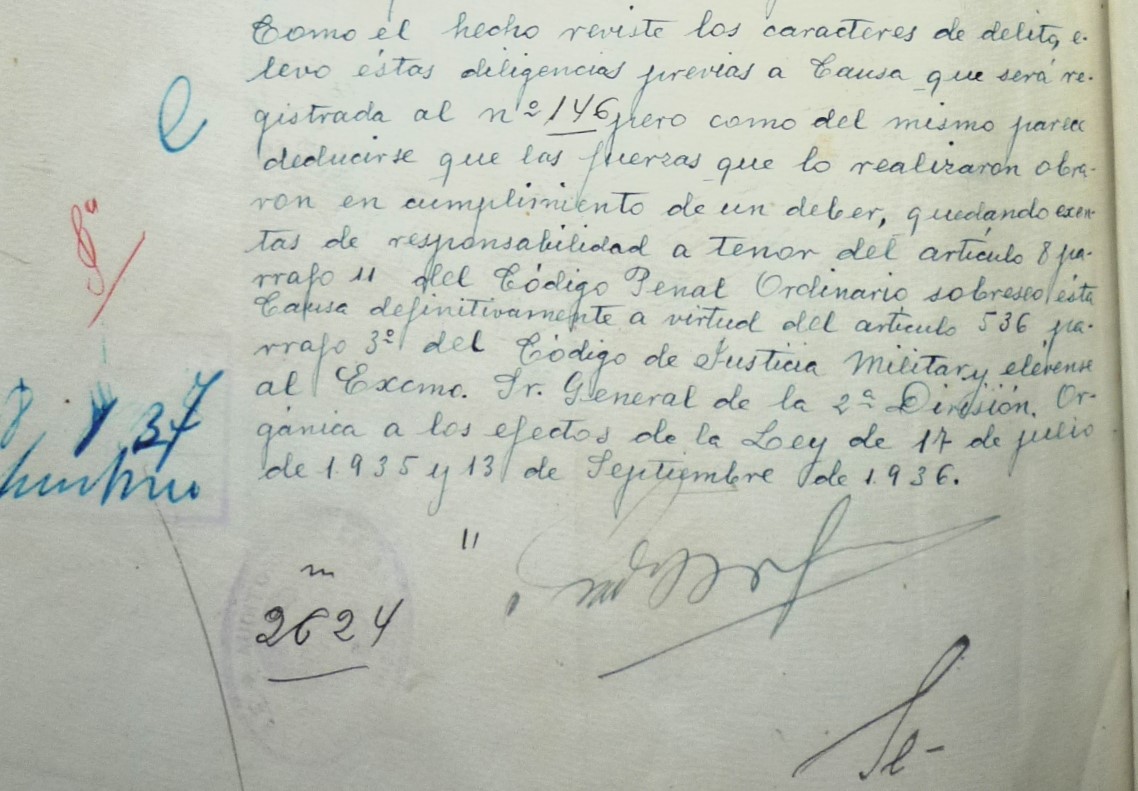 Como el hecho reviste los caracteres de delito, e-
levo éstas diligencias previas a Causa que será re-
gistrada al nº 146 pero como del mismo parece
deducirse que las fuerzas que lo realizaron obra-
ron en cumplimiento de un deber, quedando exen-
tas de responsabilidad a tenor del artículo 8 pá-
rrafo 11 del Código Penal Ordinario, sobreseo ésta
Causa definitivamente a virtud del artículo 536 pa-
rrafo 3º del Código de Justicia Militar y elévense
al Excmo. Sr. General de la 2ª División Or-
gánica a los efectos de la Ley de 17 de julio
de 1.935 y 13 de Septiembre de 1.936.
"
2624
8ª
37